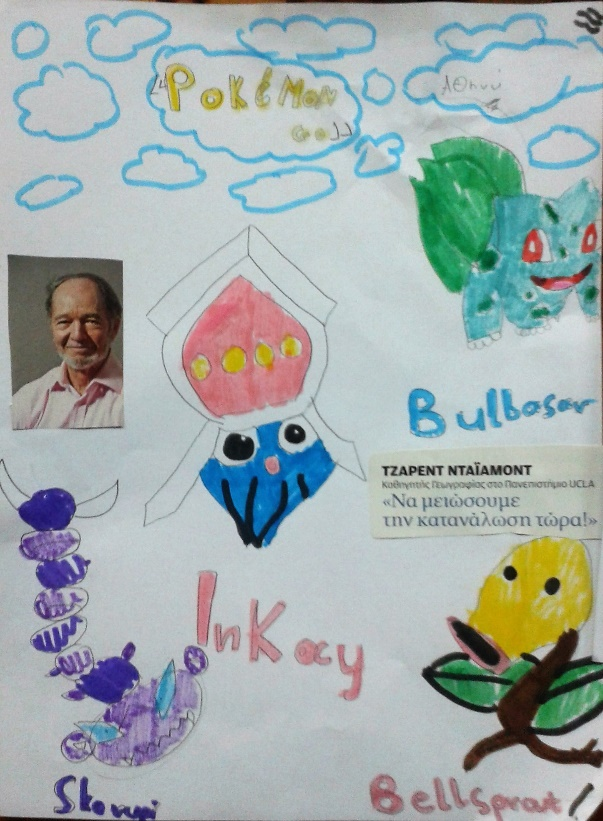 "Pokémon
Go"
Αθηνά
Bulbasar
ΤΖΑΡΕΝΤ ΝΤΑΪΑΜΟΝΤ
Καθηγητής Γεωγραφίας στο Πανεπιστήμιο UCLA
«Να μειώσουμε
την κατανάλωση τώρα!»
Inkay
Skorupi
Bellsprout!